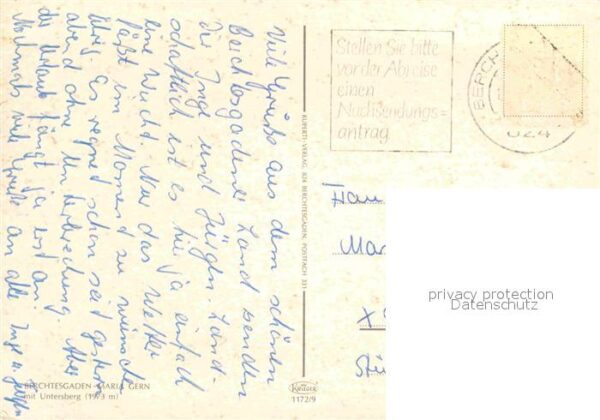 Viele Grüße aus dem schönen
Berchtesgadener Land senden
die Inge und Jürgen. Land-
schaftlich ist es hier ja einfach
eine Wucht. Nur das Wetter
läßt im Moment zu wünschen
übrig. Es regnet schon seit gestern
abend ohne Unterbrechung. Aber
der Urlaub fängt ja erst an.
Nochmals viele Grüße an alle Inge u. Jürgen
BERCHTESGADEN - MARIA GERN
mit Untersberg (1973 m)
RUPERTI-VERLAG, 8240 BERCHTESGADEN, POSTFACH 331
Krüger
1172/9
Stellen Sie bitte
vor der Abreise
einen
Nachsendungs=
antrag
BERCH
824
Mar
X
privacy protection
Datenschutz